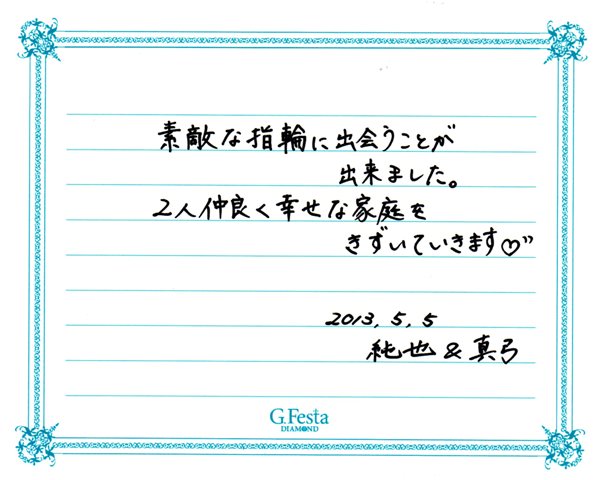 素敵な指輪に出会うことが
出来ました。
2人仲良く幸せな家庭を
きずいていきます♡"
2013, 5, 5
純也 & 真弓
G.Festa
DIAMOND